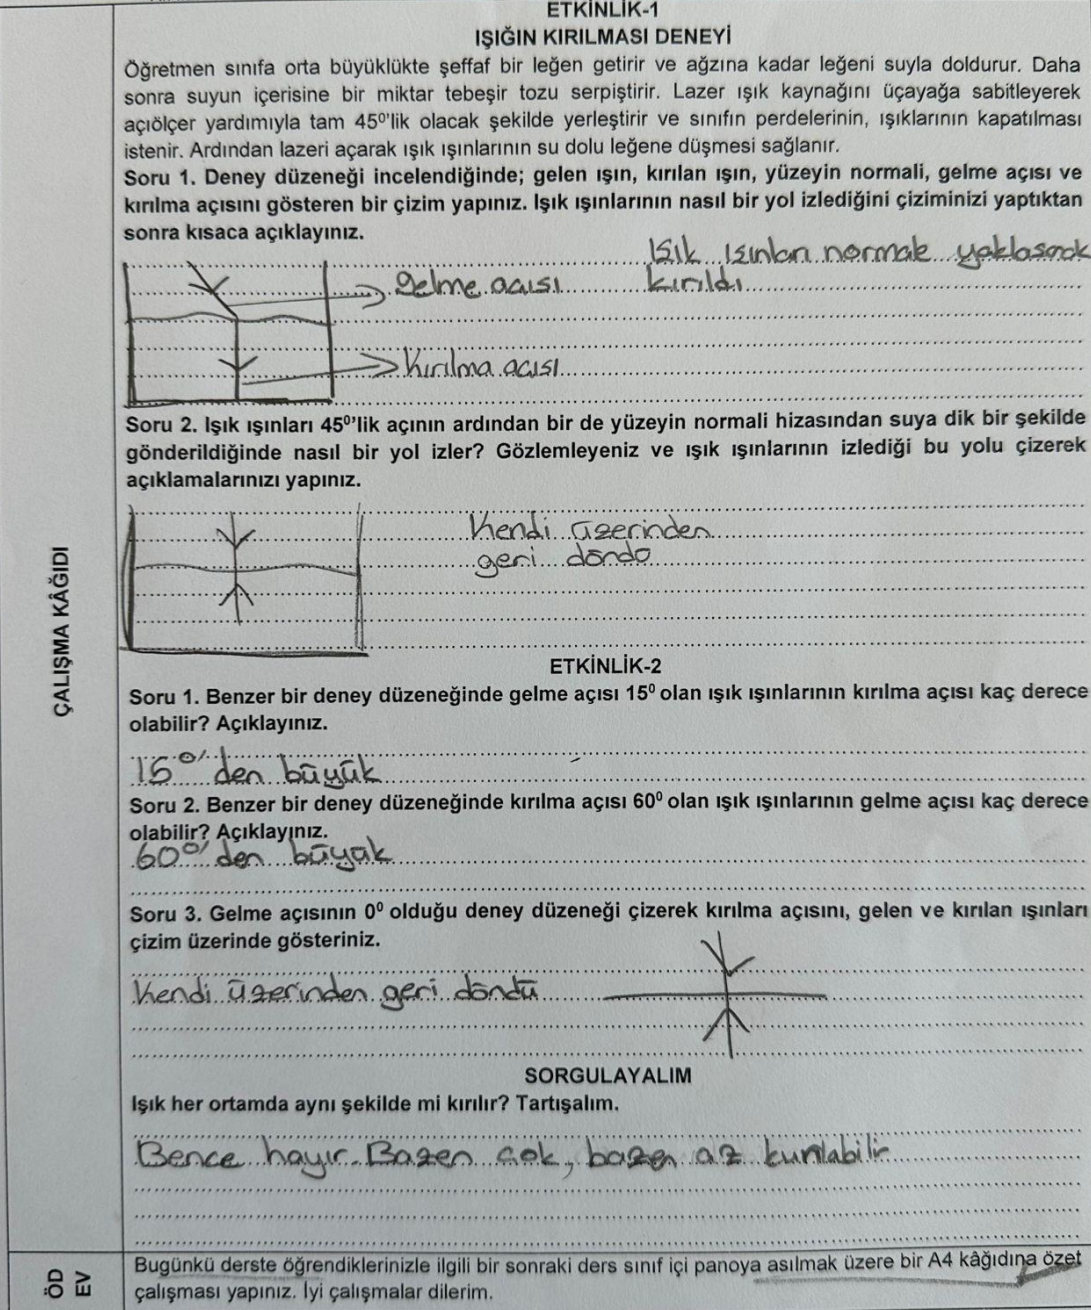 ETKİNLİK-1
IŞIĞIN KIRILMASI DENEYİ
Öğretmen sınıfa orta büyüklükte şeffaf bir leğen getirir ve ağzına kadar leğeni suyla doldurur. Daha
sonra suyun içerisine bir miktar tebeşir tozu serpiştirir. Lazer ışık kaynağını üçayağa sabitleyerek
açıölçer yardımıyla tam 45⁰'lik olacak şekilde yerleştirir ve sınıfın perdelerinin, ışıklarının kapatılması
istenir. Ardından lazeri açarak ışık ışınlarının su dolu leğene düşmesi sağlanır.
Soru 1. Deney düzeneği incelendiğinde; gelen ışın, kırılan ışın, yüzeyin normali, gelme açısı ve
kırılma açısını gösteren bir çizim yapınız. Işık ışınlarının nasıl bir yol izlediğini çiziminizi yaptıktan
sonra kısaca açıklayınız.
Işık ışınları normale yaklaşarak
kırıldı
gelme açısı
kırılma açısı
Soru 2. Işık ışınları 45⁰'lik açının ardından bir de yüzeyin normali hizasından suya dik bir şekilde
gönderildiğinde nasıl bir yol izler? Gözlemleyeniz ve ışık ışınlarının izlediği bu yolu çizerek
açıklamalarınızı yapınız.
Kendi üzerinden
geri döndü
ÇALIŞMA KÂĞIDI
ETKİNLİK-2
Soru 1. Benzer bir deney düzeneğinde gelme açısı 15⁰ olan ışık ışınlarının kırılma açısı kaç derece
olabilir? Açıklayınız.
15⁰'den büyük
Soru 2. Benzer bir deney düzeneğinde kırılma açısı 60⁰ olan ışık ışınlarının gelme açısı kaç derece
olabilir? Açıklayınız.
60⁰'den büyük
Soru 3. Gelme açısının 0⁰ olduğu deney düzeneği çizerek kırılma açısını, gelen ve kırılan ışınları
çizim üzerinde gösteriniz.
Kendi üzerinden geri döndü
SORGULAYALIM
Işık her ortamda aynı şekilde mi kırılır? Tartışalım.
Bence hayır. Bazen çok, bazen az kırılabilir
ÖD
EV
Bugünkü derste öğrendiklerinizle ilgili bir sonraki ders sınıf içi panoya asılmak üzere bir A4 kâğıdına özet
çalışması yapınız. İyi çalışmalar dilerim.